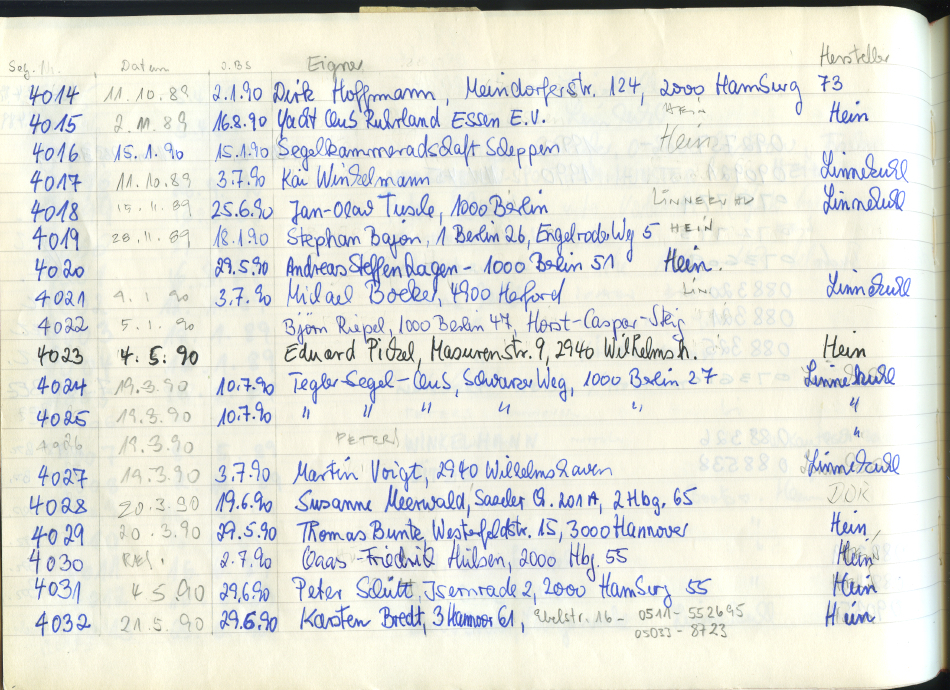 Seg. Nr. Datum Ü.BS Eigner Hersteller
4014 11.10.89 2.1.90 Dirk Hoffmann, Meindorferstr. 124, 2000 Hamburg 73 Hein
4015 2.11.89 16.8.90 Yacht Club Ruhrland Essen E.V. Hein
4016 15.1.90 15.1.90 Segelkammeradschaft Scleppen Hein
4017 11.10.89 3.7.90 Kai Winkelmann Linnekuhl
4018 15.11.89 25.6.90 Jan-Olav Tusche, 1000 Berlin LINNEKUHL Linnekuhl
4019 28.11.89 18.1.90 Stephan Bajon, 1 Berlin 26, Engelroder Weg 5 HEIN
4020 29.5.90 Andreas Steffenhagen - 1000 Berlin 51 Hein.
4021 4.1.90 3.7.90 Michael Böcker, 4900 Herford LIN Linnekuhl
4022 5.1.90 Björn Riepel, 1000 Berlin 47, Horst-Caspar-Steig
4023 4.5.90 Eduard Pitzel, Masurenstr. 9, 2940 Wilhelmsh. Hein
4024 19.3.90 10.7.90 Tegler-Segel-Club, Schwarzer Weg, 1000 Berlin 27 Linnekuhl
4025 19.3.90 10.7.90 " " " " " "
4026 19.3.90 PETERS "
4027 19.3.90 3.7.90 Martin Voigt, 2940 Wilhelmshaven Linnekuhl
4028 20.3.90 19.6.90 Susanne Meerwald, Saseler Ch. 201A, 2 Hbg. 65
4029 20.3.90 29.5.90 Thomas Bunte, Westerfeldstr. 15, 3000 Hannover Hein
4030 RES. 2.7.90 Claas-Fiedrik Hülsen, 2000 Hbg. 55 Hein
4031 4 5.90 29.6.90 Peter Schütt, Isernrade 2, 2000 Hamburg 55 Hein
4032 21.5.90 29.6.90 Karsten Bredt, 3 Hannover 61, Ebelstr. 16 - 0511-552695 Hein
05033-8723